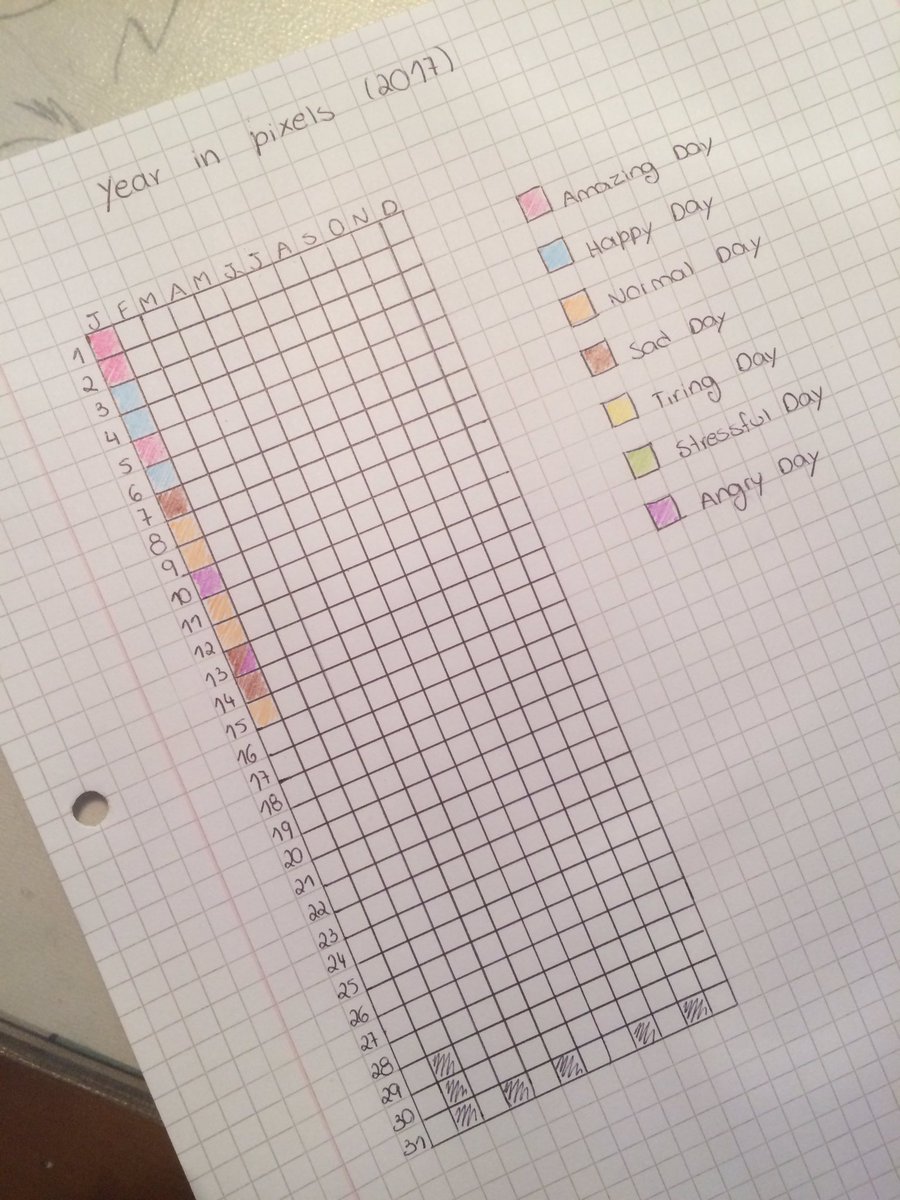 Year in pixels (2017)
J F M A M J J A S O N D
1
2
3
4
5
6
7
8
9
10
11
12
13
14
15
16
17
18
19
20
21
22
23
24
25
26
27
28
29
30
31
Amazing Day
Happy Day
Normal Day
Sad Day
Tiring Day
Stressful Day
Angry Day